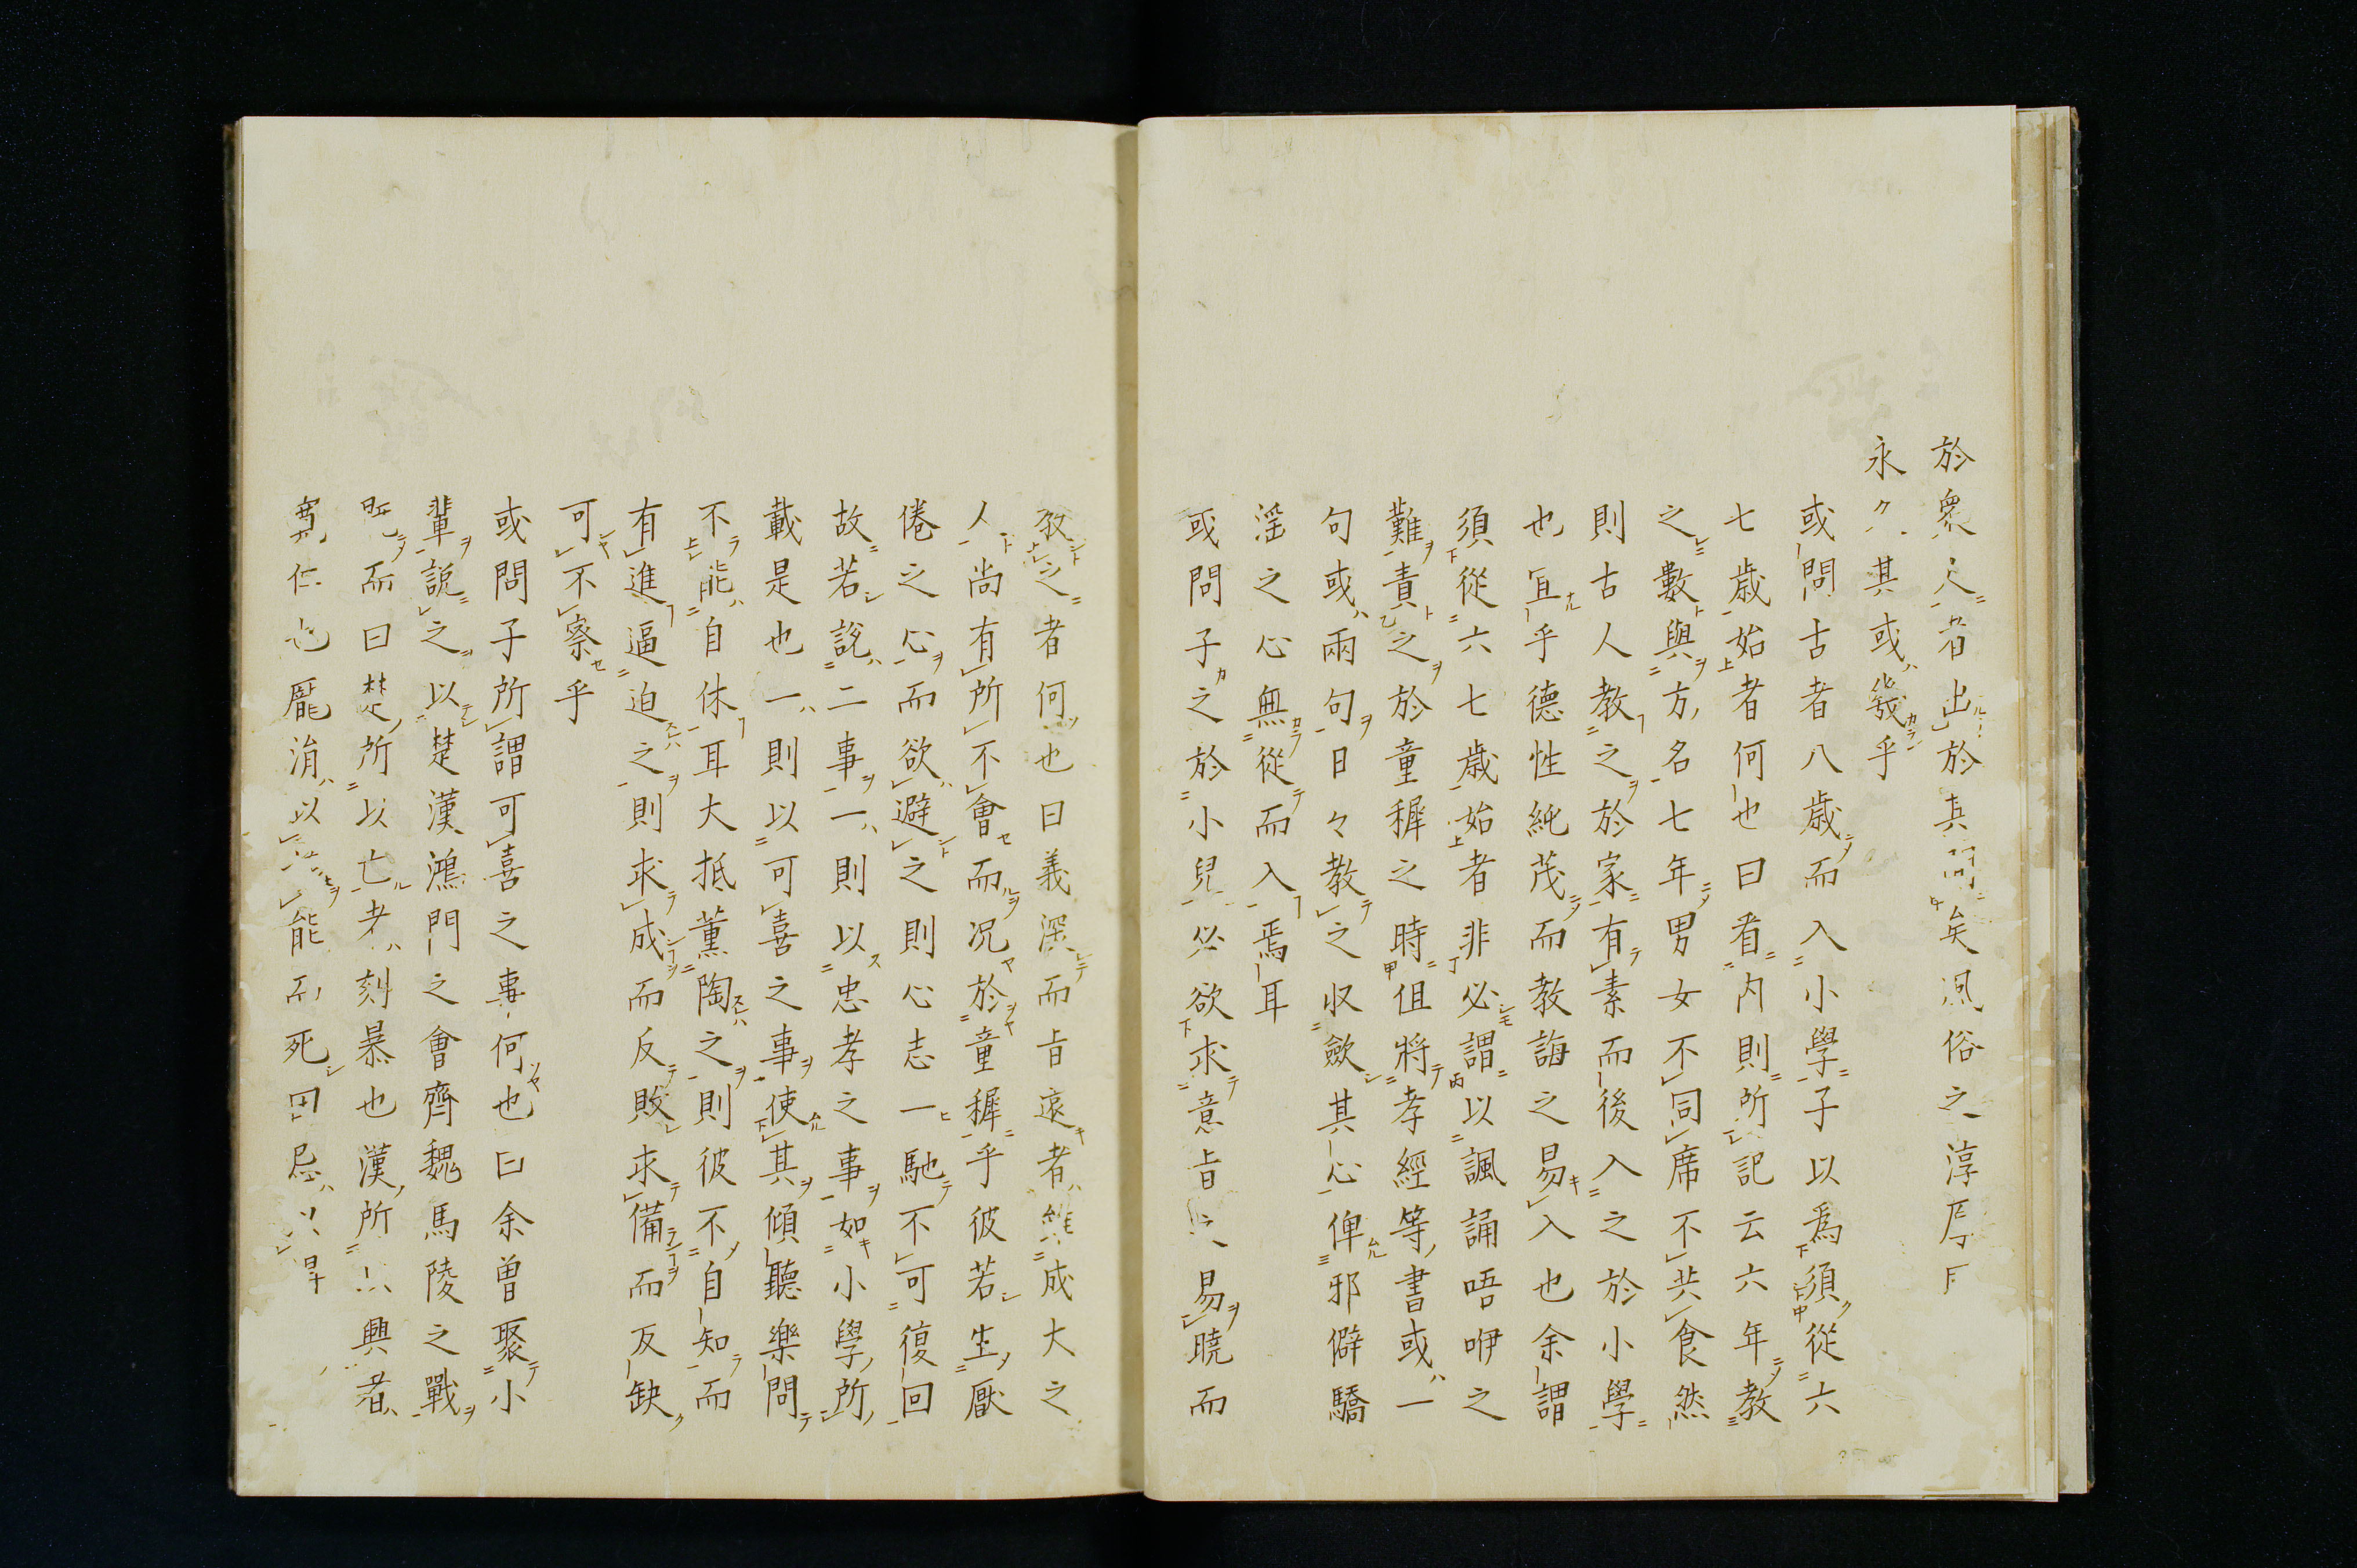 於衆人者出於其間矣風俗之淳厚
永久其或幾乎
或問古者八歳而入小學子以爲須從六
七歳始者何也曰看内則所記云六年教
之數與方名七年男女不同席不共食然
則古人教之於家有素而後入之於小學
也宜乎德性純茂而教誨之易入也余謂
須從六七歳始者非必謂以諷誦唔咿之
難責之於童穉之時但將孝經等書或一
句或兩句日々教之収歛其心俾邪僻驕
淫之心無從而入焉耳
或問子之於小兒必欲求意旨之易曉而
教之者何也曰義深而旨遠者雖成大之
人尚有所不會而况於童穉乎彼若生厭
倦之心而欲避之則心志一馳不可復回
故若説二事一則以忠孝之事如小學所
載是也一則以可喜之事使其傾聽樂問
不能自休耳大抵薫陶之則彼不自知而
有進逼迫之則求成而反敗求備而反缺
可不察乎
或問子所謂可喜之事何也曰余曽聚小
輩説之以楚漢鴻門之會齊魏馬陵之戰
既而曰楚所以亡者刻暴也漢所以興者
寛仁也龐涓以能而死田忌以